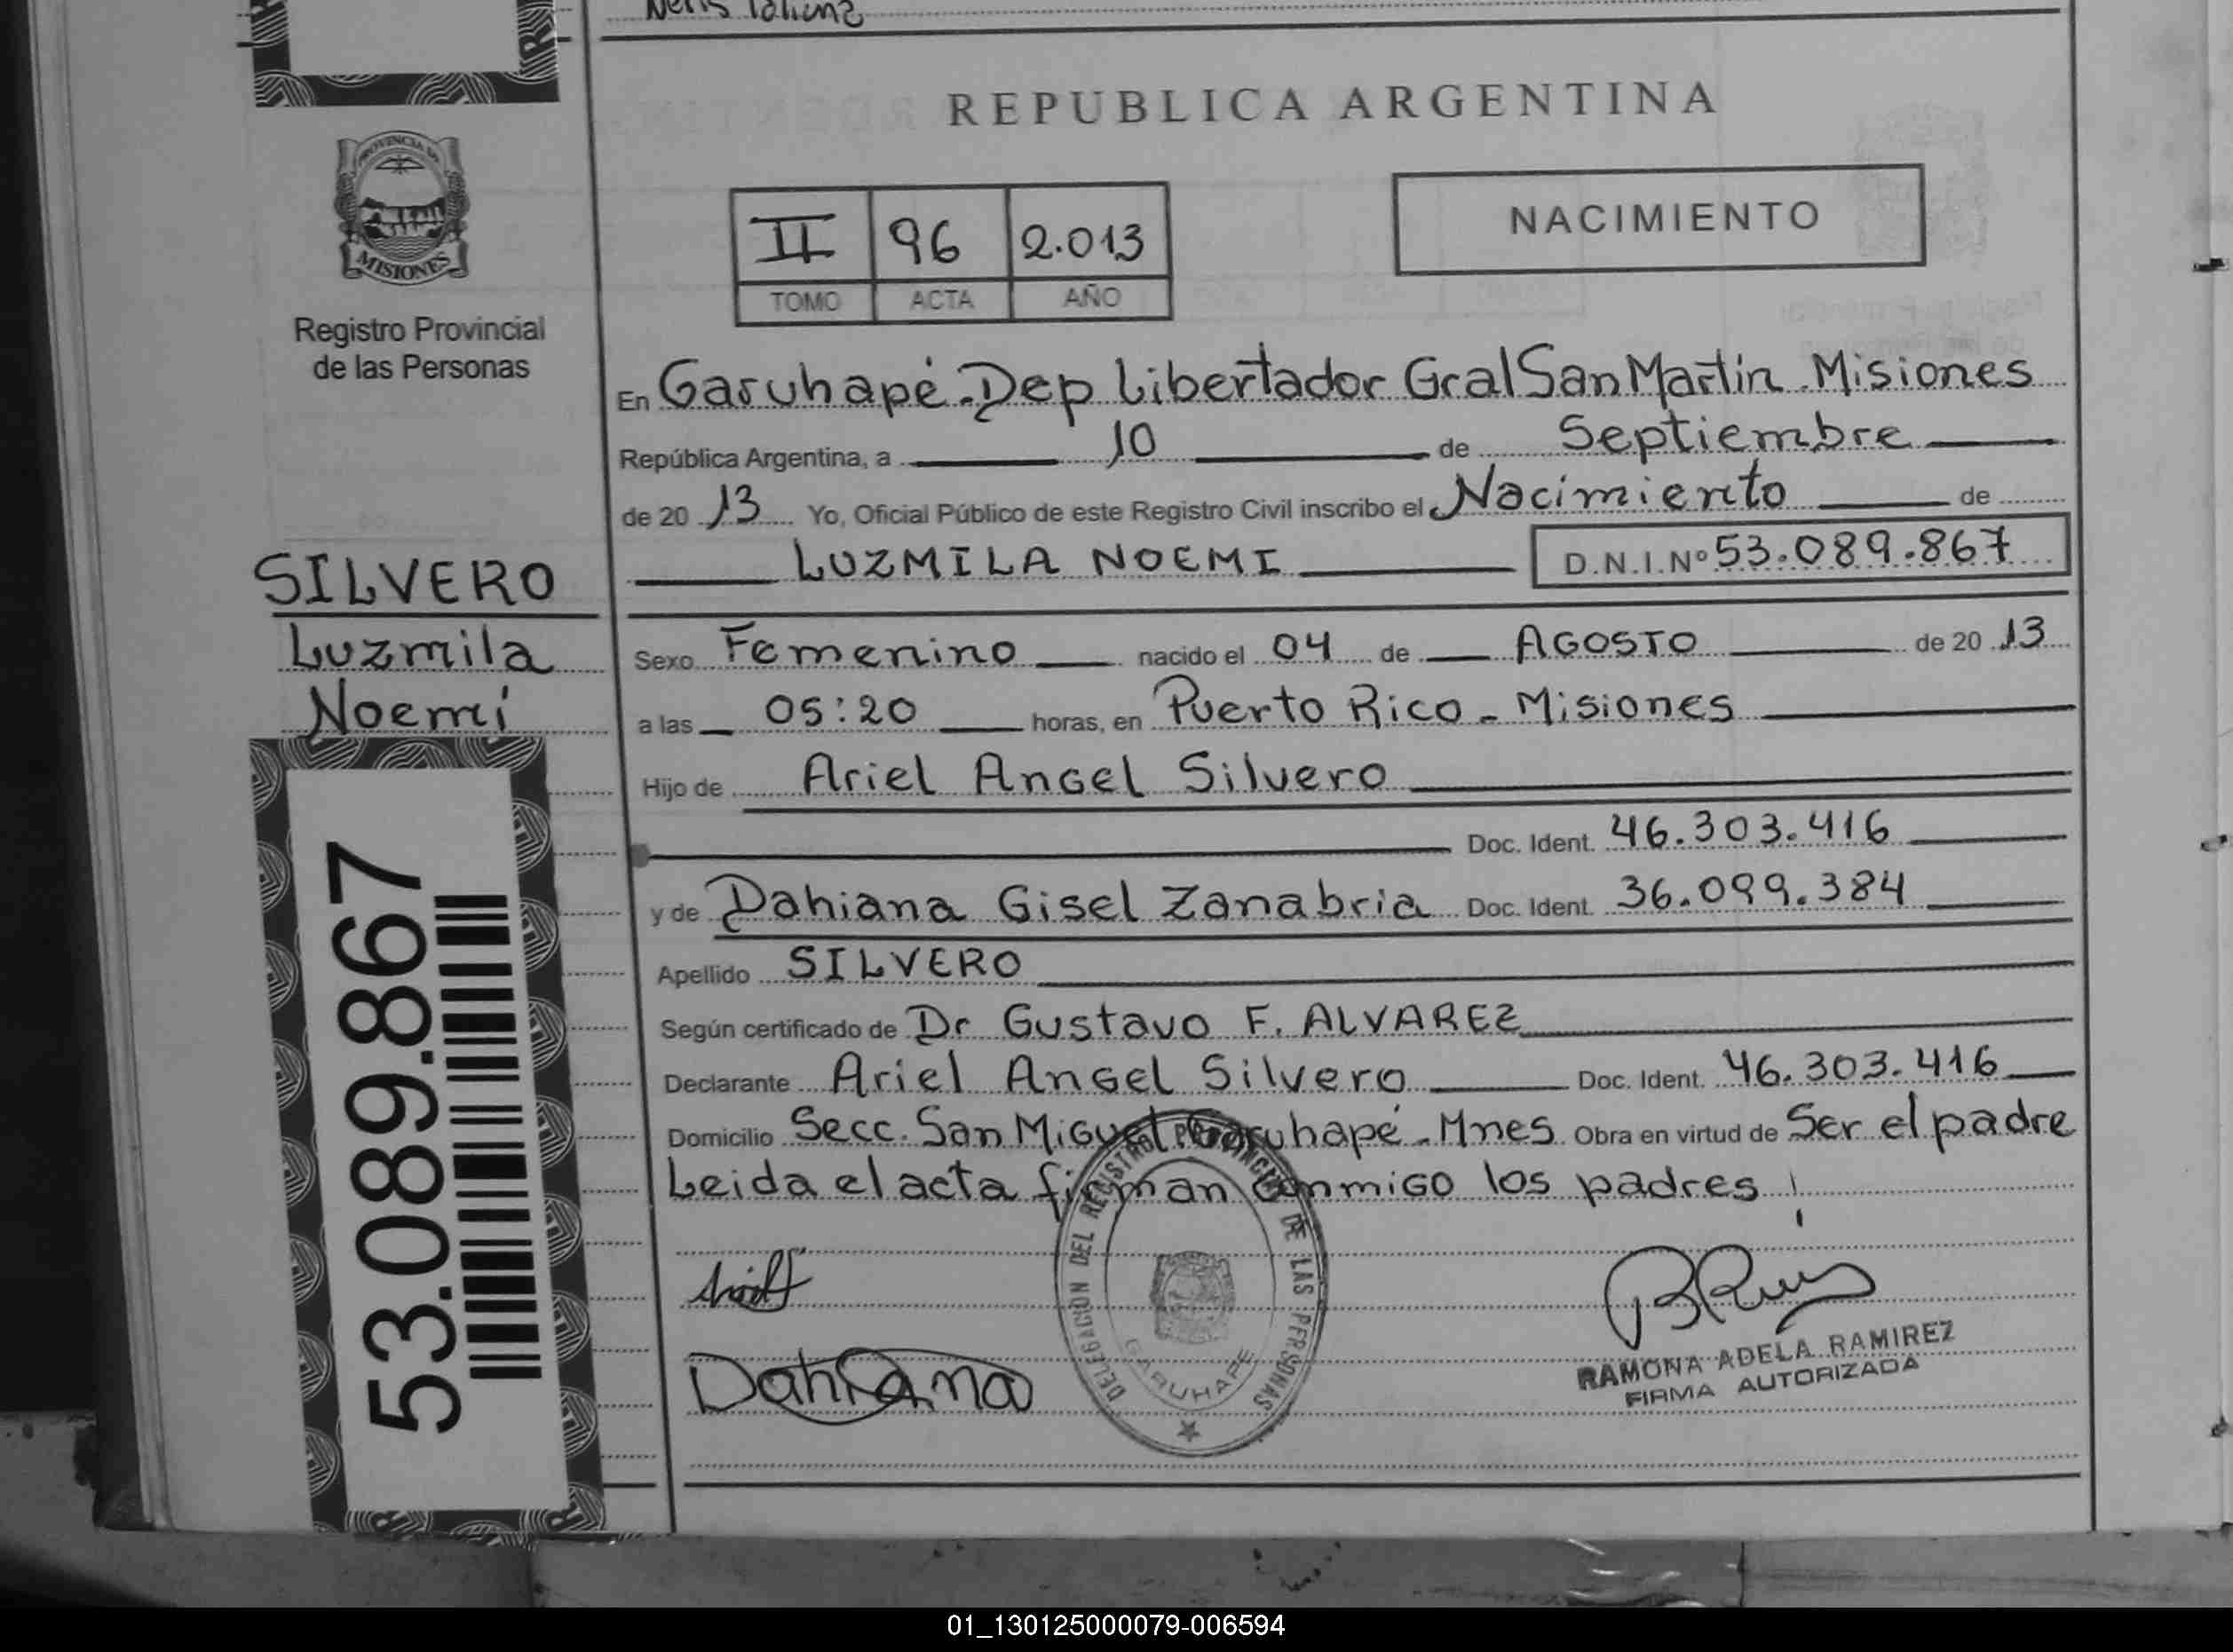 Nelis Taliena
REPUBLICA ARGENTINA
PROVINCIA DE
MISIONES
Registro Provincial
de las Personas
NACIMIENTO
II 96 2.013
TOMO ACTA AÑO
En Garuhapé - Dep Libertador Gral San Martín - Misiones
República Argentina, a 10 de Septiembre
de 20 13 Yo, Oficial Público de este Registro Civil inscribo el Nacimiento de
LUZMILA NOEMI D.N.I.Nº 53.089.867
SILVERO
Luzmila
Noemí
Sexo Femenino nacido el 04 de AGOSTO de 20 13
a las 05:20 horas, en Puerto Rico - Misiones
Hijo de Ariel Angel Silvero
Doc. Ident. 46.303.416
y de Dahiana Gisel Zanabria Doc. Ident. 36.099.384
Apellido SILVERO
Según certificado de Dr Gustavo F. ALVAREZ
Declarante Ariel Angel Silvero Doc. Ident. 46.303.416
Domicilio Secc. San Miguel Garuhapé - Mnes Obra en virtud de Ser el padre
Leida el acta firman conmigo los padres
53.089.867
DELEGACION DEL REGISTRO PROVINCIAL DE LAS PERSONAS
GARUHAPE
Dahiana
RAMONA ADELA RAMIREZ
FIRMA AUTORIZADA
01_130125000079-006594